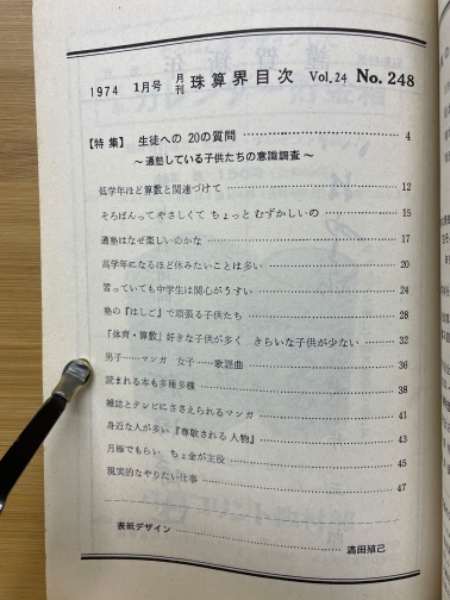 1974 1月号 月刊 珠算界目次 Vol.24 No.248
【特集】 生徒への 20の質問 …… 4
～通塾している子供たちの意識調査～
低学年ほど算数と関連づけて …… 12
そろばんって やさしくて ちょっと むずかしいの …… 15
通塾はなぜ楽しいのかな …… 17
高学年になるほど休みたいことは多い …… 20
習っていても中学生は関心がうすい …… 24
塾の『はしご』で頑張る子供たち …… 28
「体育・算数」好きな子供が多く きらいな子供が少ない …… 32
男子……マンガ 女子……歌謡曲 …… 36
読まれる本も多種多様 …… 38
雑誌とテレビにささえられるマンガ …… 41
身近な人が多い『尊敬される人物』 …… 43
月極でもらい ちょ金が主役 …… 45
現実的なやりたい仕事 …… 47
表紙デザイン …… 高田殖己